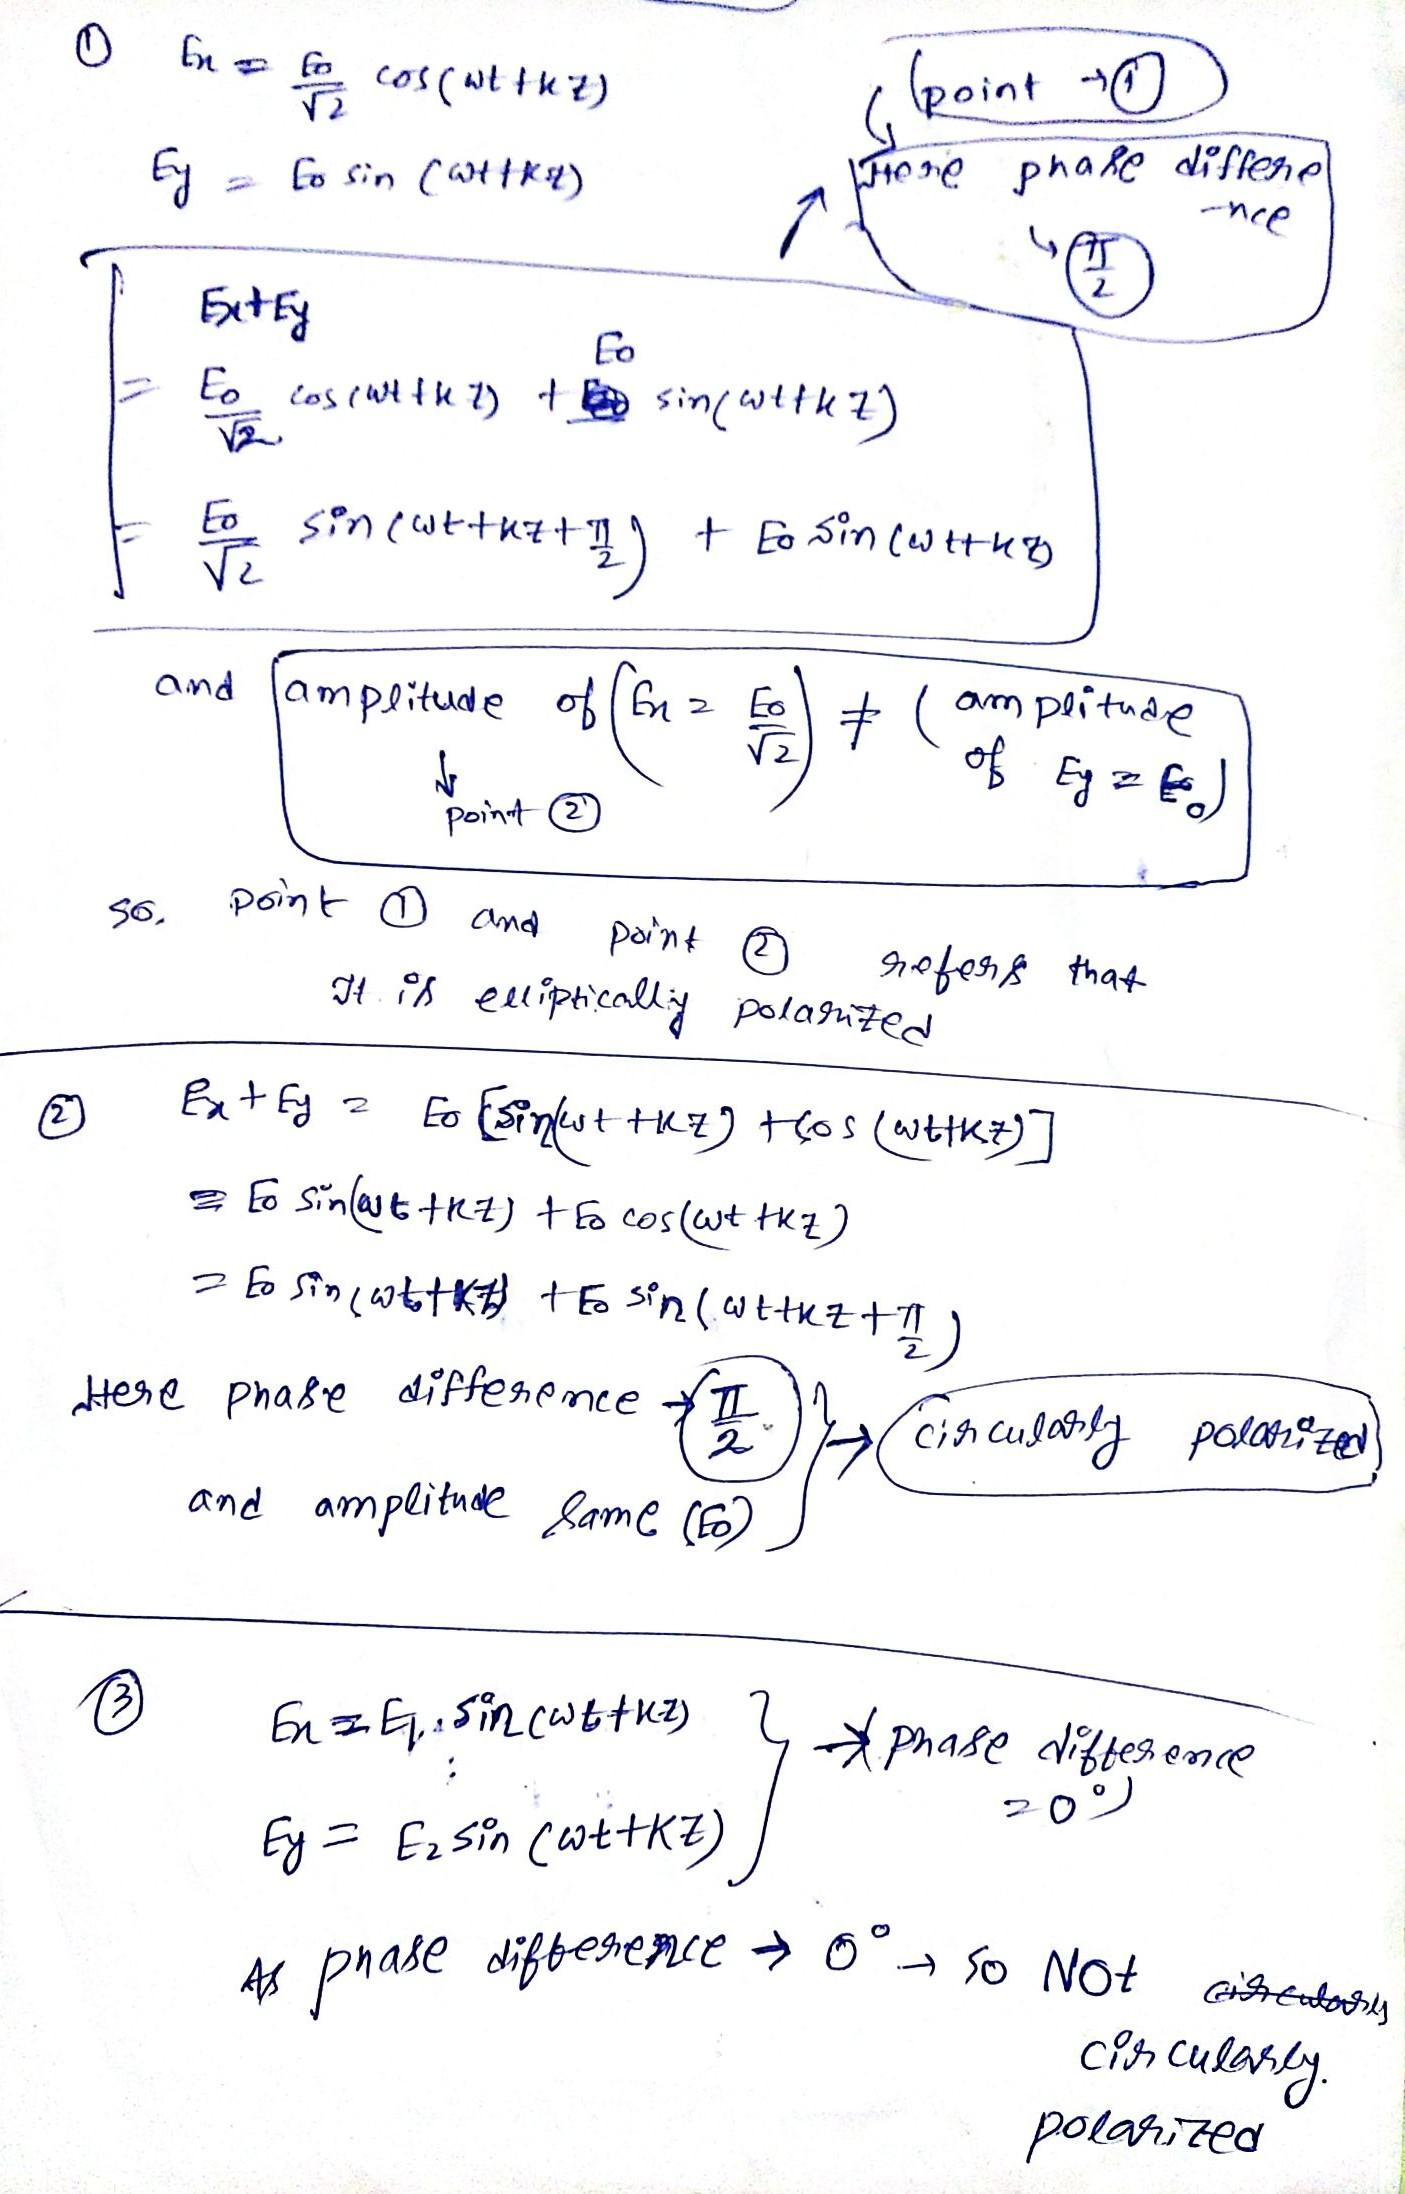 ① Ex = E₀/√2 cos(ωt+kz)
Ey = E₀ sin (ωt+kz)
(point → ①)
Here phase differe
-nce
↳ π/2
Ex+Ey
= E₀/√2 cos(ωt+kz) + E₀ sin(ωt+kz)
= E₀/√2 sin(ωt+kz+π/2) + E₀ sin(ωt+kz)
and amplitude of (Ex = E₀/√2) ≠ (amplitude
of Ey = E₀)
↓
point ②
so, point ① and point ② refers that
It is elliptically polarized
② Ex + Ey = E₀ [sin(ωt+kz) + cos(ωt+kz)]
= E₀ sin(ωt+kz) + E₀ cos(ωt+kz)
= E₀ sin(ωt+kz) + E₀ sin(ωt+kz+π/2)
Here phase difference → π/2
and amplitude same (E₀)
} → circularly polarized
③ Ex = E₁ sin(ωt+kz)
Ey = E₂ sin (ωt+kz)
} → phase difference
= 0°)
As phase difference → 0° → so NOt circularly
circularly.
polarized